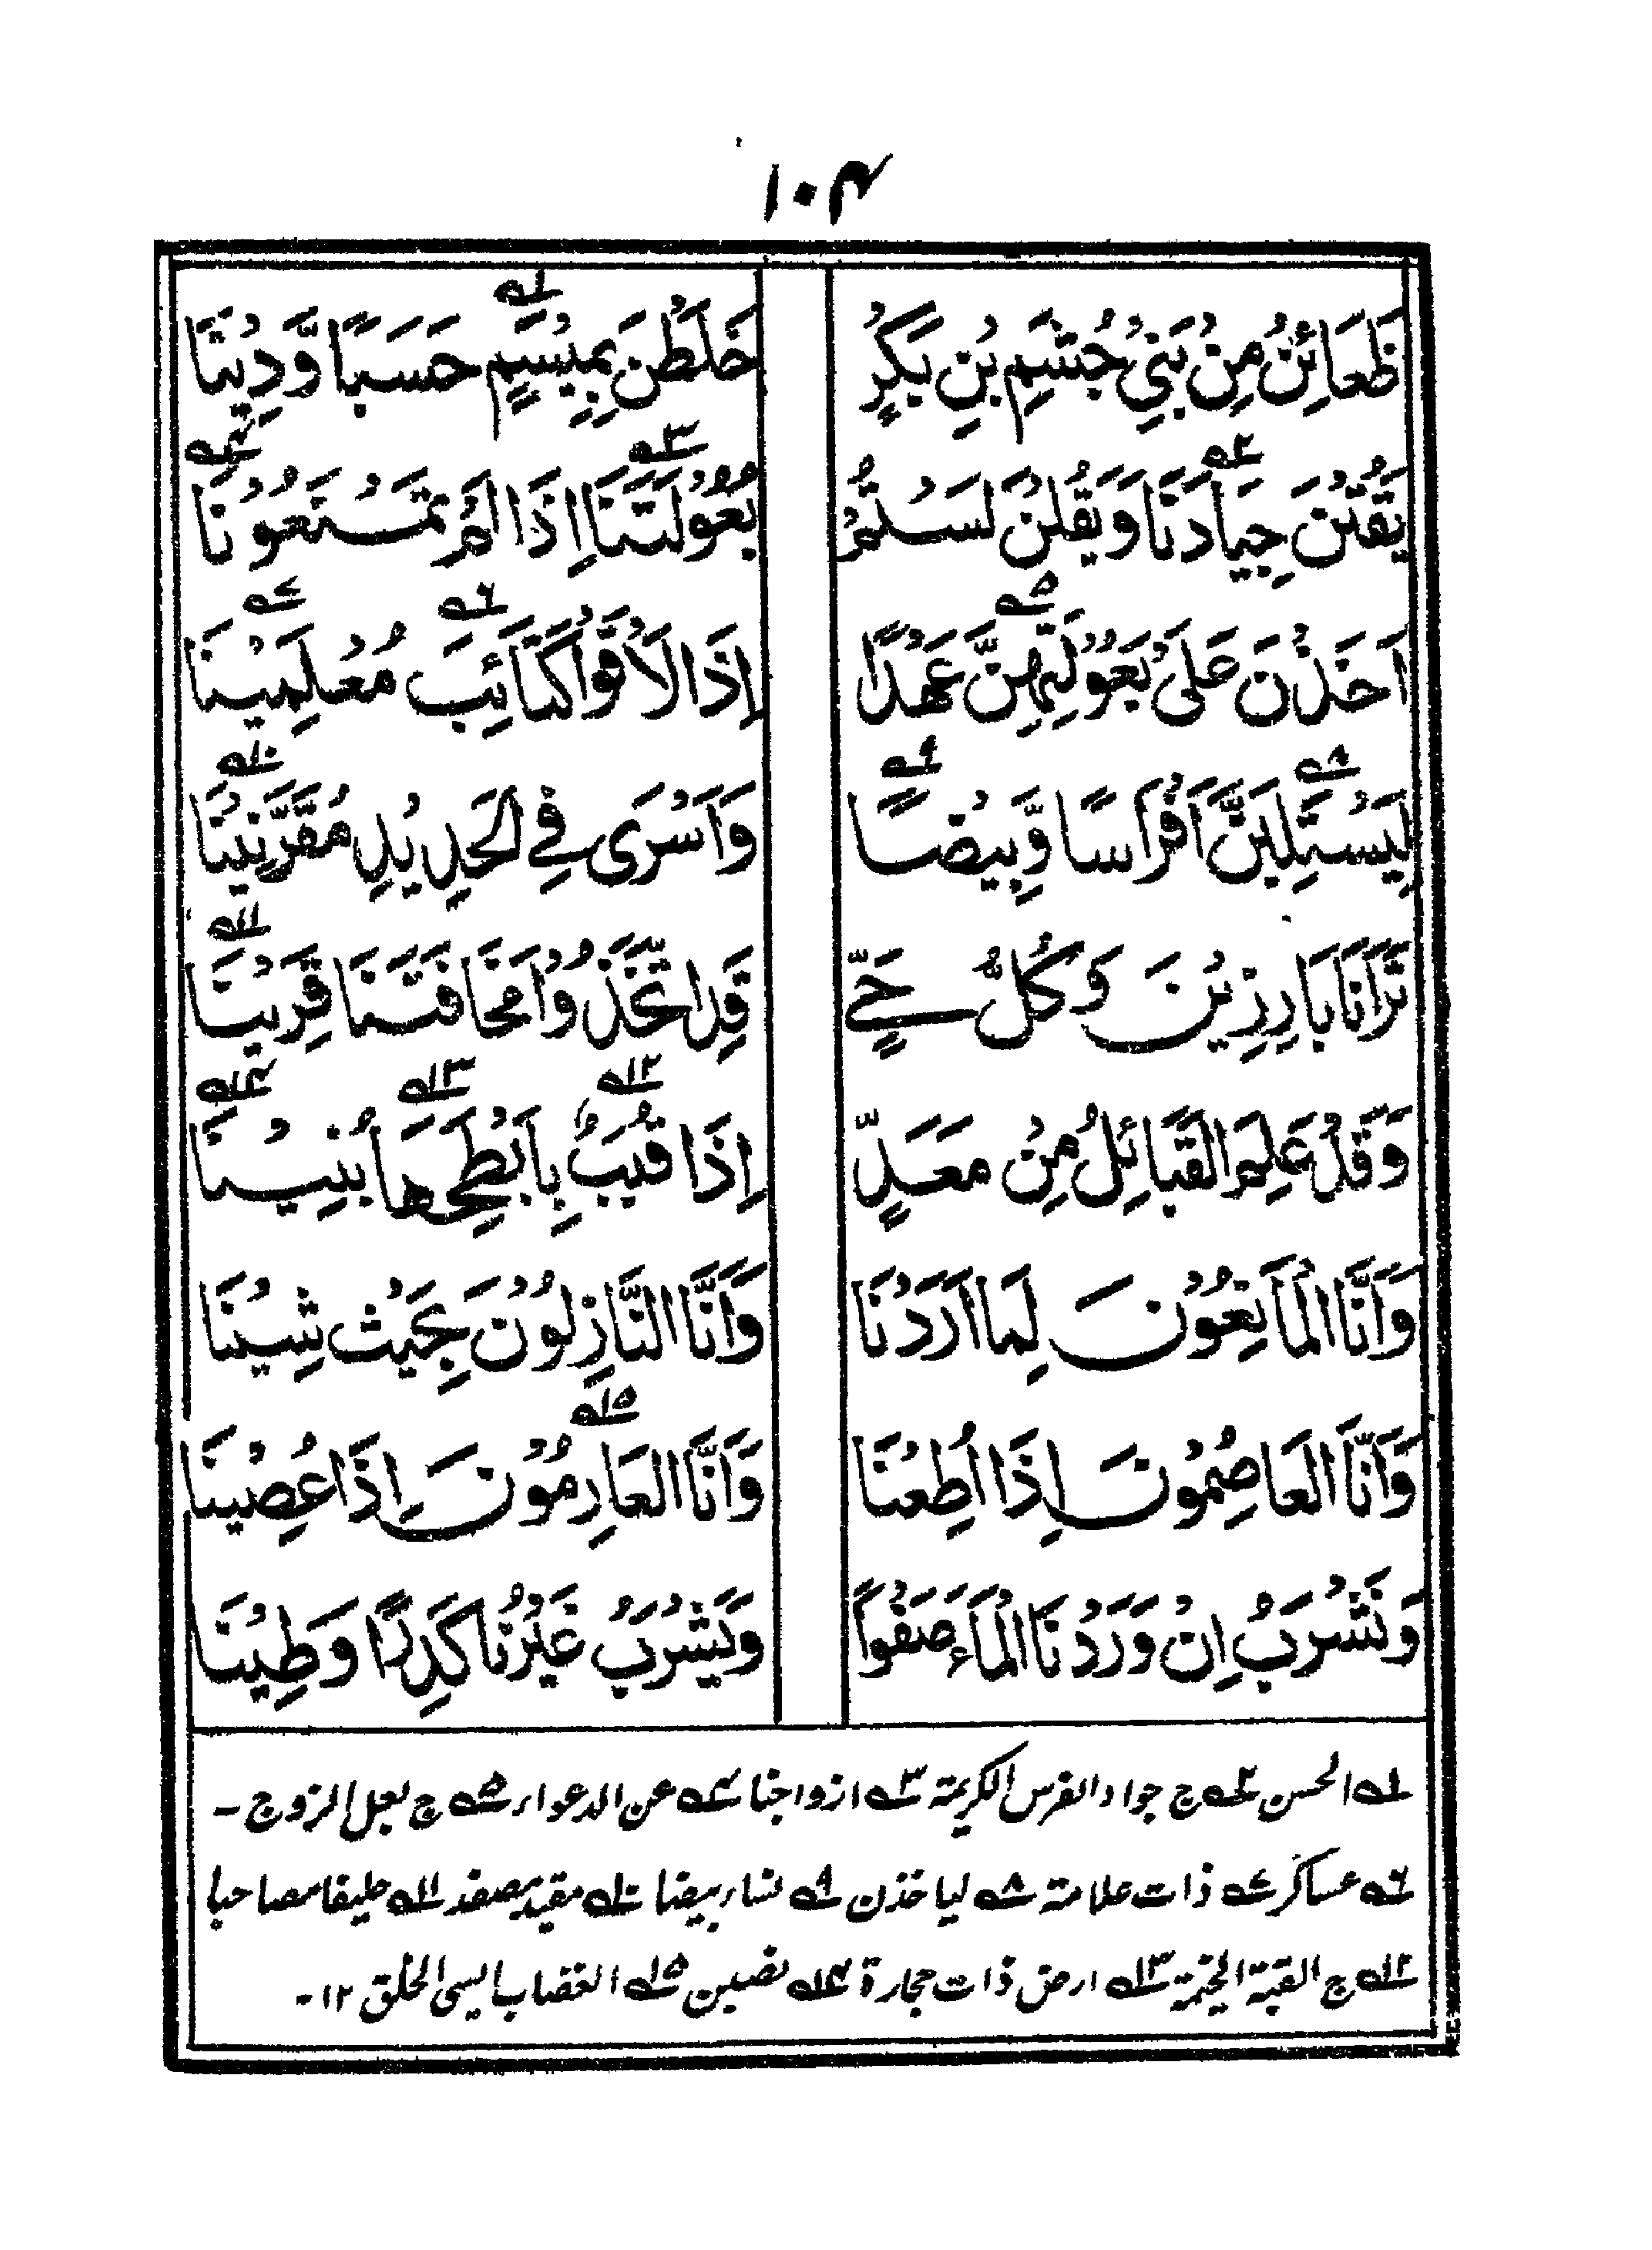 ۱۰۴
ظَعَائِنُ مِنْ بَنِيْ جُشَمِ بْنِ بَكْرٍ خَلَطْنَ بِمِيْسَمٍ۱ حَسَبًا وَّدِيْنَا
يَقُتْنَ جِيَادَنَا۲ وَيَقُلْنَ لَسْتُمْ بُعُوْلَتَنَا۳ اِذَا لَمْ تَمْنَعُوْنَا۴
اَخَذْنَ عَلىٰ بُعُوْلَتِهِنَّ۵ عَهْدًا اِذَا لَاقَوْا كَتَائِبَ۶ مُعْلِمِيْنَا۷
لِيَسْتَلِبَنَّ۸ اَفْرَاسًا وَّبِيْضًا۹ وَاَسْرٰى فِي الحَدِيْدِ مُقَرَّنِيْنَا۱۰
تَرَانَا بَارِزِيْنَ وَكُلُّ حَيٍّ قَدِ اتَّخَذُوْا مَخَافَتَنَا قَرِيْنَا۱۱
وَقَدْ عَلِمَ القَبَائِلُ مِنْ مَعَدٍّ اِذَا قُبَبٌ۱۲ بِاَبْطَحِهَا۱۳ بُنِيْنَا۱۴
وَاَنَّا المَانِعُوْنَ لِمَا اَرَدْنَا وَاَنَّا النَّازِلُوْنَ بِحَيْثُ شِيْنَا
وَاَنَّا العَاصِمُوْنَ اِذَا اُطِعْنَا وَاَنَّا العَارِمُوْنَ۱۵ اِذَا عُصِيْنَا
وَنَشْرَبُ اِنْ وَرَدْنَا المَاءَ صَفْوًا وَيَشْرَبُ غَيْرُنَا كَدِرًا وَطِيْنَا
۱ الحسن ۲ ج جواد الفرس الكريمة ۳ ازواجنا ۴ عن الدعواء ۵ ج بعل الزوج -
۶ عساكر ۷ ذات علامة ۸ لياخذن ۹ نساء بيضا ۱۰ مقيد مصفد ۱۱ حليفا مصاحبا
۱۲ ج القبة الخيمة ۱۳ ارض ذات حجارة ۱۴ نصبن ۱۵ الغضاب السئ الخلق ۱۲-